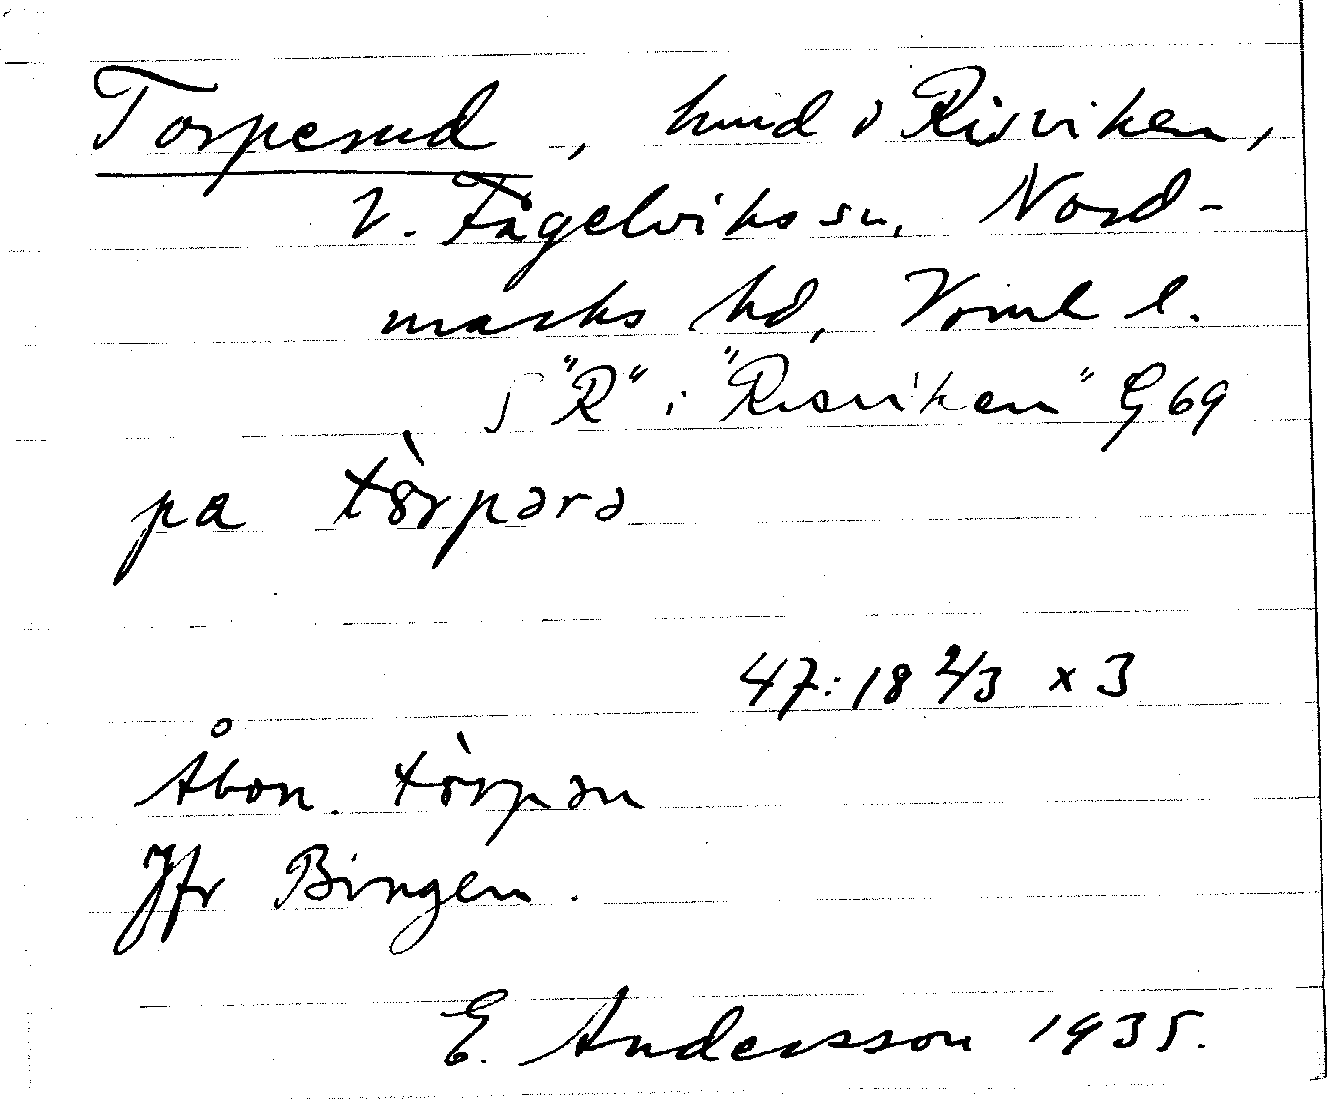 Torperud, hmd i Risviken,
V. Fågelviks sn, Nord-
marks hd, Vrml l.
"R" i "Risviken" G 69
pa tòrpərə
47:18 2/3 x 3
Åbon. tòrpən
Jfr Bingen.
E. Andersson 1935.